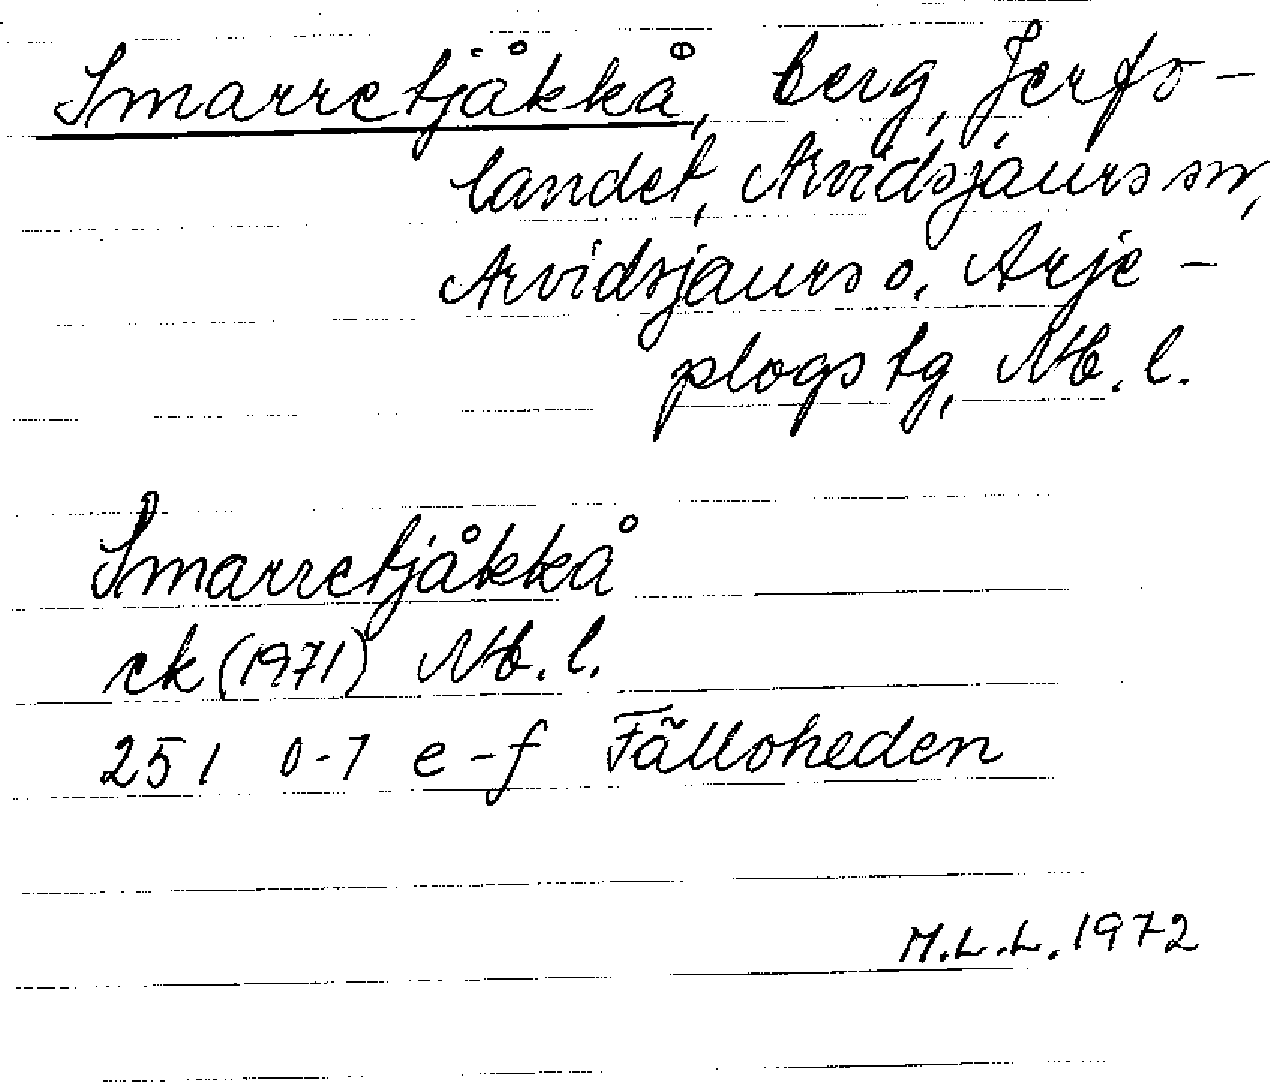 Smarretjåkkå, berg, Jerfo-
landet, Arvidsjaurs sn,
Arvidsjaurs o. Arje-
plogs tg, Nb. l.
Smarretjåkkå
ek (1971) Nb. l.
25 I 0-1 e-f Fälloheden
M.L.L. 1972